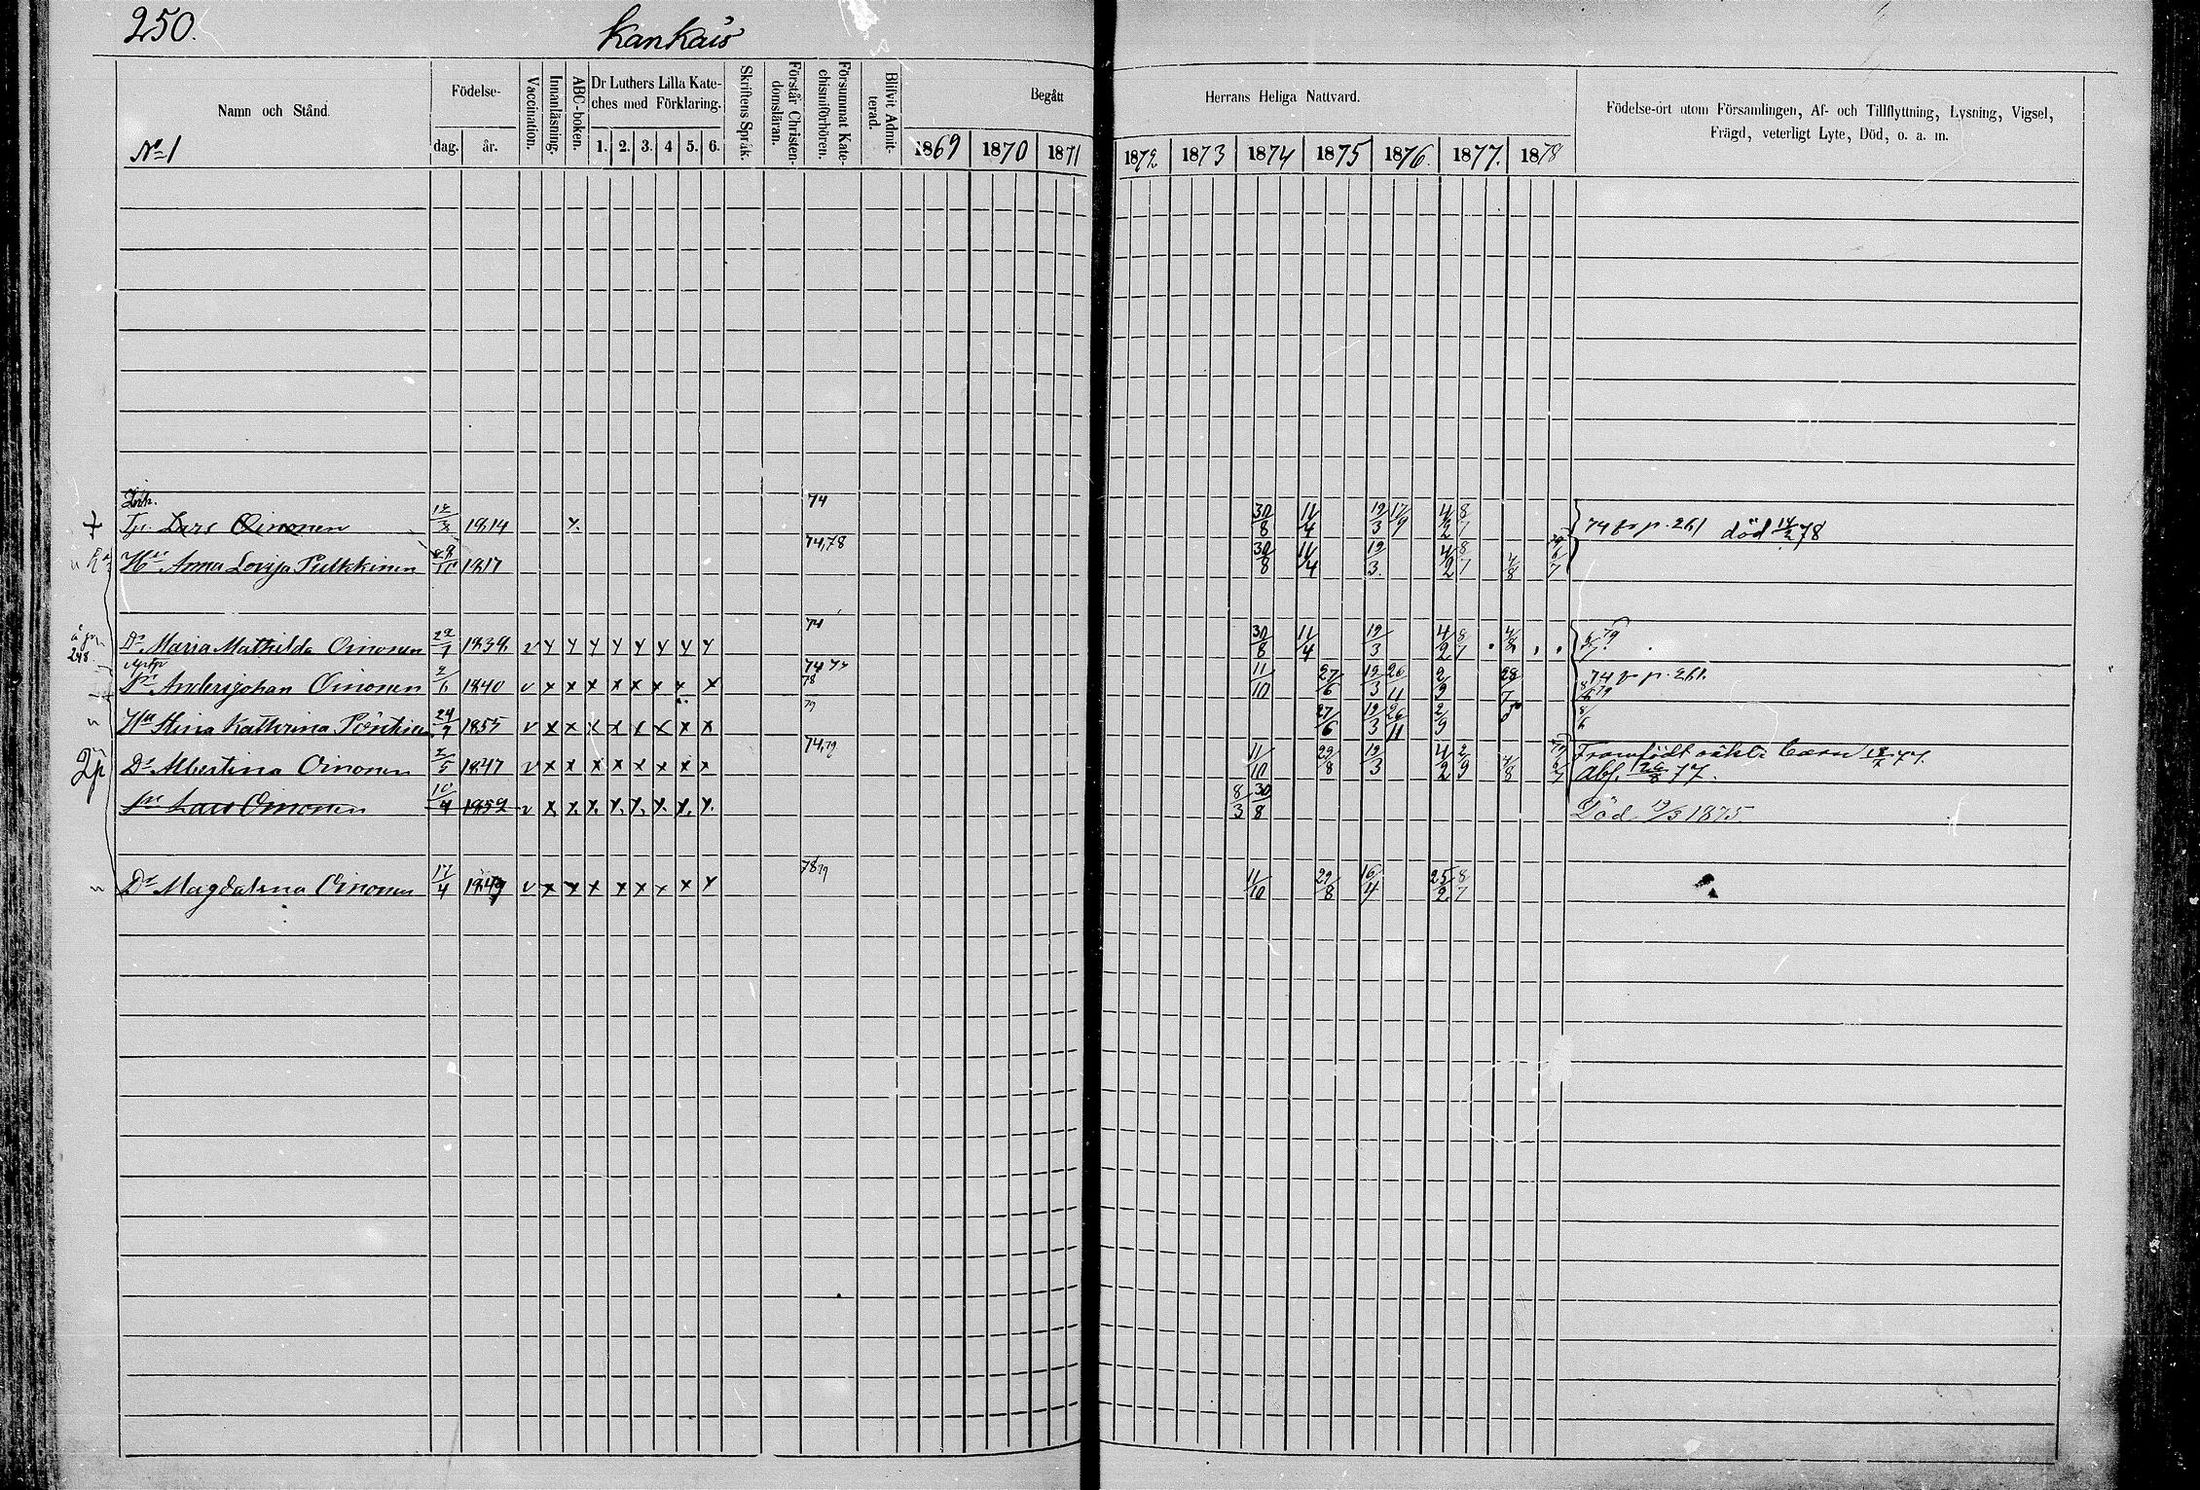 250.
Kankais
Namn och Stånd.
No 1
Födelse-
dag.
år.
Vaccination.
Innanläsning.
ABC-boken.
Dr Luthers Lilla Kate-
ches med Förklaring.
1. 2. 3. 4 5. 6.
Skriftens Språk.
Förstår Christen-
domsläran.
Försummat Kate-
chismiförhören.
Blifvit Admit-
terad.
Begått
Herrans Heliga Nattvard.
1869 1870 1871 1872 1873 1874 1875 1876. 1877. 1878
Födelse-ort utom Församlingen, Af- och Tillflyttning, Lysning, Vigsel,
Frägd, veterligt Lyte, Död, o. a. m.
Inh. 74
Lars Oinonen 1814 x 30/8 11/4 19/3 17/9 4/2 8/7 74 fr p. 261 död 78
Hu Anna Lovisa Pulkkinen 1817 74,78 30/8 11/4 19/3 4/2 8/7
Dr Maria Mathilda Oinonen 1839 v y y y y y y y y 74 30/8 11/4 19/3 4/2 8/7
248
Andersjohan Oinonen 2/6 1840 v x x x x x x x x 74 77 78 11/10 27/6 19/3 26/11 2/9 74 fr p. 261.
Hu Stina Kathrina 1855 v x x x x x x x x 79 27/6 19/3 26/11 2/9 8/6
2p
Dr Albertina Oinonen 1847 v x x x x x x x x 74,79 11/10 29/8 19/3 4/2 2/9 barn 77.
Abf. 77.
Sn Lars Oinonen 1852 v x x x x x x x x 8/3 30/8 Död 19/3 1875.
Dr Magdalena Oinonen 17/4 1849 v x x x x x x x x 78 79 11/10 29/8 16/4 25/2 8/7